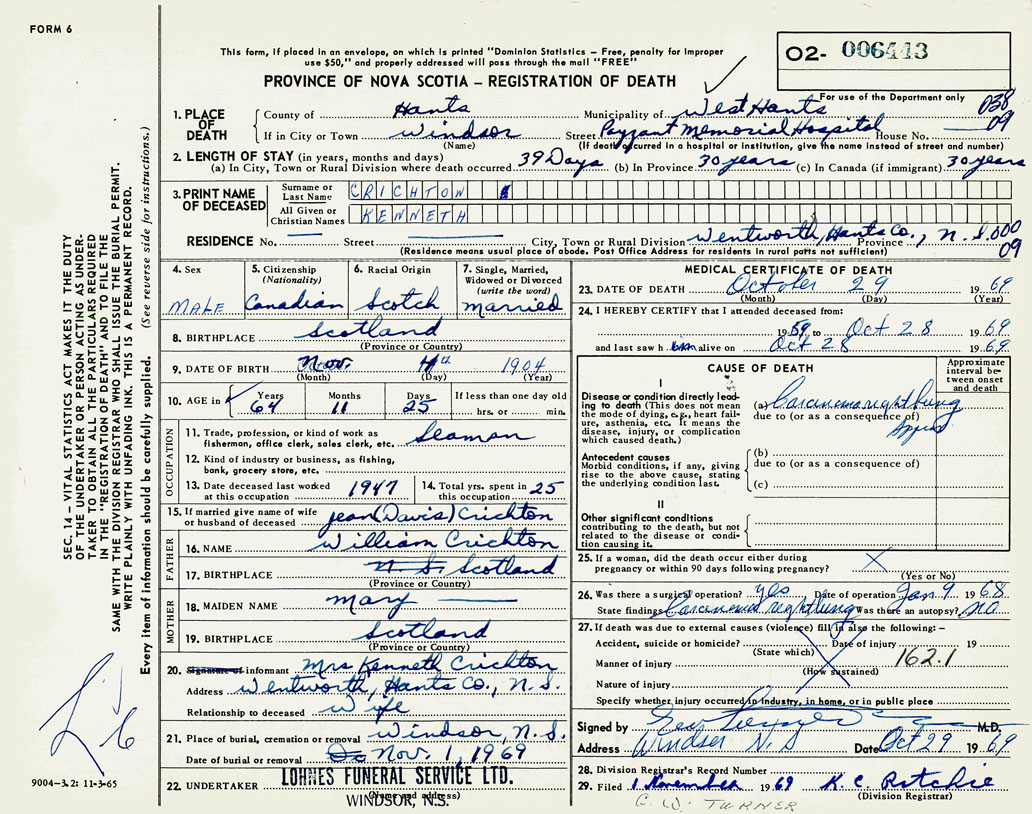 FORM 6
This form, if placed in an envelope, on which is printed "Dominion Statistics – Free, penalty for improper
use $50," and properly addressed will pass through the mail "FREE"
PROVINCE OF NOVA SCOTIA – REGISTRATION OF DEATH
O2- 006443
For use of the Department only
038
09
1. PLACE OF DEATH
County of Hants Municipality of West Hants
If in City or Town Windsor Street Payzant Memorial Hospital House No.
(Name) (If death occurred in a hospital or institution, give the name instead of street and number)
2. LENGTH OF STAY (in years, months and days)
(a) In City, Town or Rural Division where death occurred 39 Days (b) In Province 30 years (c) In Canada (if immigrant) 30 years
3. PRINT NAME OF DECEASED
Surname or Last Name CRICHTON
All Given or Christian Names KENNETH
RESIDENCE No. Street City, Town or Rural Division Wentworth, Hants Co., Province N.S. 000
09
(Residence means usual place of abode. Post Office Address for residents in rural parts not sufficient)
4. Sex
MALE
5. Citizenship
(Nationality)
Canadian
6. Racial Origin
Scotch
7. Single, Married, Widowed or Divorced
(write the word)
married
8. BIRTHPLACE Scotland
(Province or Country)
9. DATE OF BIRTH Nov. 4th 1904
(Month) (Day) (Year)
10. AGE in Years 64 Months 11 Days 25 If less than one day old
hrs. or min.
OCCUPATION
11. Trade, profession, or kind of work as
fisherman, office clerk, sales clerk, etc. Seaman
12. Kind of industry or business, as fishing,
bank, grocery store, etc.
13. Date deceased last worked
at this occupation 1947
14. Total yrs. spent in
this occupation 25
15. If married give name of wife
or husband of deceased Jean (Davis) Crichton
FATHER
16. NAME William Crichton
17. BIRTHPLACE N.S. Scotland
(Province or Country)
MOTHER
18. MAIDEN NAME Mary
19. BIRTHPLACE Scotland
(Province or Country)
20. Signature of informant Mrs Kenneth Crichton
Address Wentworth, Hants Co., N.S.
Relationship to deceased Wife
21. Place of burial, cremation or removal Windsor, N.S.
Date of burial or removal Nov. 1, 1969
22. UNDERTAKER LOHNES FUNERAL SERVICE LTD.
(Name and address)
WINDSOR, N.S.
MEDICAL CERTIFICATE OF DEATH
23. DATE OF DEATH October 29 1969
(Month) (Day) (Year)
24. I HEREBY CERTIFY that I attended deceased from:
1969 to Oct 28 1969
and last saw h alive on Oct 28 1969
CAUSE OF DEATH
Approximate interval between onset and death
I
Disease or condition directly leading to death (This does not mean the mode of dying, e.g., heart failure, asthenia, etc. It means the disease, injury, or complication which caused death.)
(a) Carcinoma right lung
due to (or as a consequence of)
Antecedent causes
Morbid conditions, if any, giving rise to the above cause, stating the underlying condition last.
(b)
due to (or as a consequence of)
(c)
II
Other significant conditions
contributing to the death, but not related to the disease or condition causing it.
25. If a woman, did the death occur either during
pregnancy or within 90 days following pregnancy?
(Yes or No)
26. Was there a surgical operation? yes Date of operation Jan 9 1968
State findings Carcinoma right lung Was there an autopsy? NO
27. If death was due to external causes (violence) fill in also the following:–
Accident, suicide or homicide? Date of injury 19
(State which)
Manner of injury 162.1
(How sustained)
Nature of injury
Specify whether injury occurred in industry, in home, or in public place
Signed by M.D.
Address Windsor N.S Date Oct 29 1969
28. Division Registrar's Record Number
29. Filed 1 November 1969 K. C. Ritchie
(Division Registrar)
C. W. TURNER
SEC. 14 – VITAL STATISTICS ACT MAKES IT THE DUTY
OF THE UNDERTAKER OR PERSON ACTING AS UNDER-
TAKER TO OBTAIN ALL THE PARTICULARS REQUIRED
IN THE "REGISTRATION OF DEATH" AND TO FILE THE
SAME WITH THE DIVISION REGISTRAR WHO SHALL ISSUE THE BURIAL PERMIT.
WRITE PLAINLY WITH UNFADING INK. THIS IS A PERMANENT RECORD.
Every item of information should be carefully supplied. (See reverse side for instructions.)
9004–3.2: 11-3-65